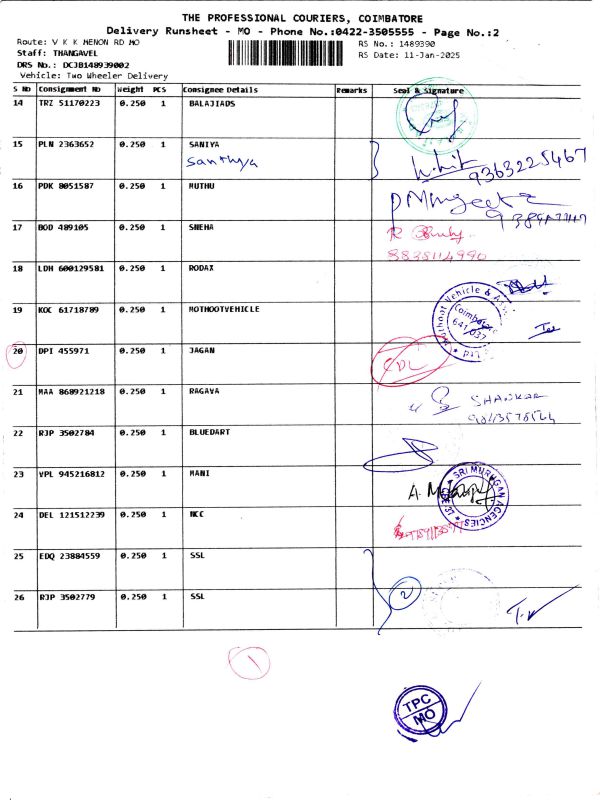 THE PROFESSIONAL COURIERS, COIMBATORE
Delivery Runsheet - MO - Phone No.:0422-3505555 - Page No.:2
Route: V K K MENON RD MO
RS No.: 1489390
Staff: THANGAVEL
RS Date: 11-Jan-2025
DRS No.: DCJB148939002
Vehicle: Two Wheeler Delivery
S No Consignment No Weight PCS Consignee Details Remarks Seal & Signature
14 TRZ 51170223 0.250 1 BALAJIADS
15 PLN 2363652 0.250 1 SANIYA
Santhya
9363225467
16 PDK 8051587 0.250 1 MUTHU
17 BOD 489105 0.250 1 SNEHA
8835114990
18 LDH 600129581 0.250 1 RODAX
19 KOC 61718789 0.250 1 MOTHOOTVEHICLE
Muthoot Vehicle & Ass
Coimbatore
641 037
Ltd
20 DPI 455971 0.250 1 JAGAN
CDL
21 MAA 868921218 0.250 1 RAGAVA
SHANKAR
22 RJP 3502784 0.250 1 BLUEDART
23 VPL 945216812 0.250 1 MANI
SRI MURUGAN AGENCIES
CBE-37
24 DEL 121512239 0.250 1 NCC
25 EDQ 23884559 0.250 1 SSL
2
26 RJP 3502779 0.250 1 SSL
1
TPC
MO